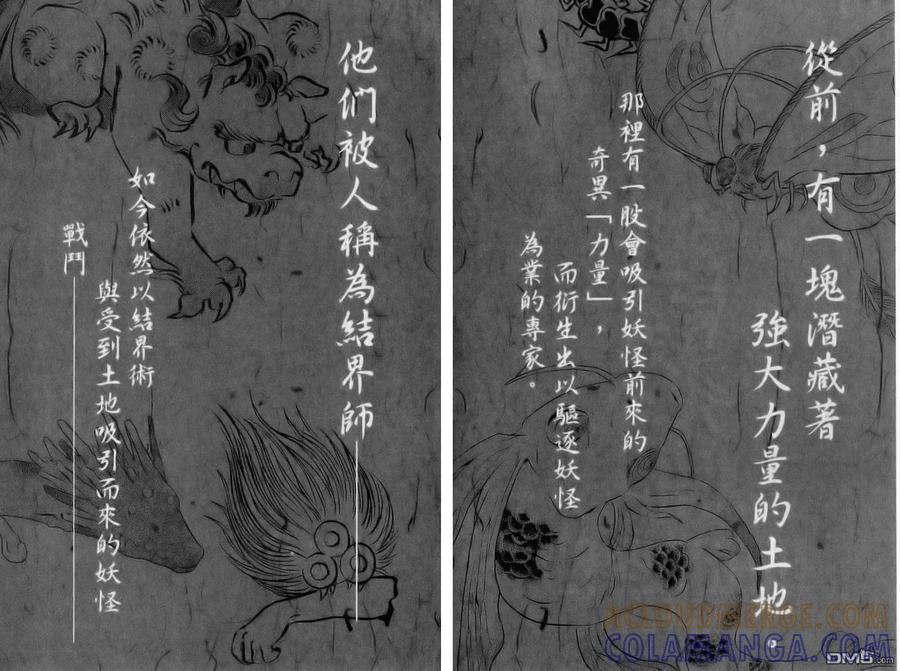 從前，有一塊潛藏著
強大力量的土地。
那裡有一股會吸引妖怪前來的
奇異「力量」，
而衍生出以驅逐妖怪
為業的專家。
他們被人稱為結界師——
如今依然以結界術
與受到土地吸引而來的妖怪
戰鬥——
COLAMANGA.COM
DM5.com